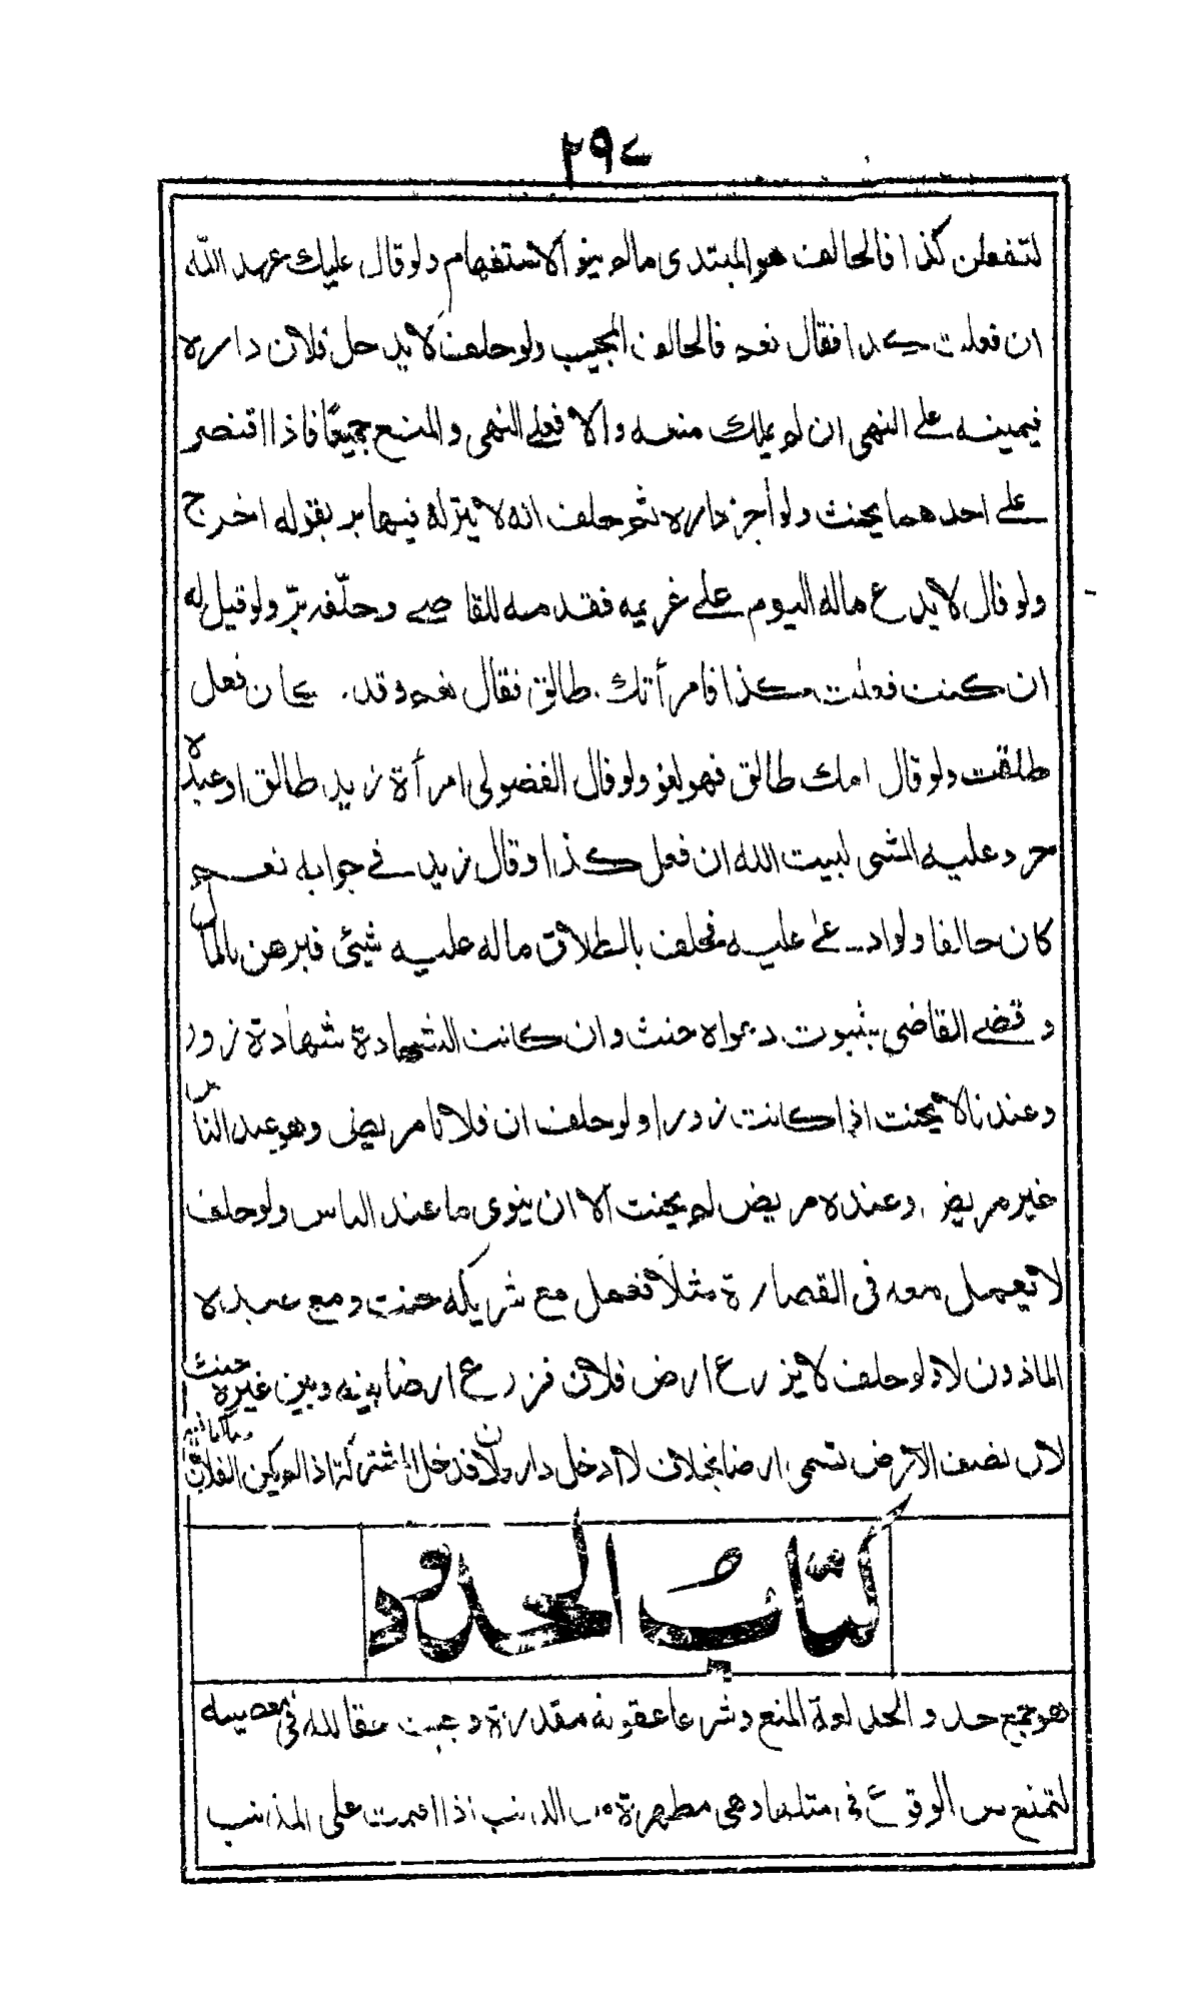 ٢٩٤
لتفعلن كذا فالحالف هو المبتدى مالم ينو الاستفهام ولو قال عليك عهد الله
ان فعلت كذا فقال نعم فالحالف المجيب ولو حلف لا يدخل فلان داره
فيمينه على النهى ان لم يملك منعه والا فعلى النهى والمنع جميعًا فاذا اقتصر
على احدهما يحنث ولو أجز داره ثم حلف انه لا ينزله فيها بر بقوله اخرج
ولو قال لا يدع ماله اليوم على غريمه فقدمه للقاضى وحلّفه برّ ولو قيل له
ان كنت فعلت كذا فامرأتك طالق فقال نعم وقد كان فعل
طلقت ولو قال امك طالق فهو لغو ولو قال الفضولى امرأة زيد طالق او عبده
حر وعليه المشى لبيت الله ان فعل كذا وقال زيد فى جوابه نعم
كان حالفا ولو ادعى عليه فحلف بالطلاق ماله عليه شيئى فبرهن بالمال
وقضى القاضى بثبوت دعواه حنث وان كانت الشهادة شهادة زور
وعندنا لا يحنث اذا كانت زورا ولو حلف ان فلانا مريض وهو عند الناس
غير مريض وعنده مريض لم يحنث الا ان ينوى ما عند الناس ولو حلف
لا يعمل معه فى القصارة مثلا فعمل مع شريكه حنث ومع عبده
الماذون لا ولو حلف لا يزرع ارض فلان فزرع ارضا بينه وبين غيره حنث
لان نصف الارض تسمى ارضا بخلاف لا ادخل دار فلان فدخل المشتركة اذا لم يكن الفلان
كتاب الحدود
هو جمع حد والحد لغة المنع وشرعا عقوبة مقدرة وجبت حقا لله فى معصيه
لتمنع من الوقوع فى مثلها وهى مطهرة من الذنب اذا اقيمت على المذنب